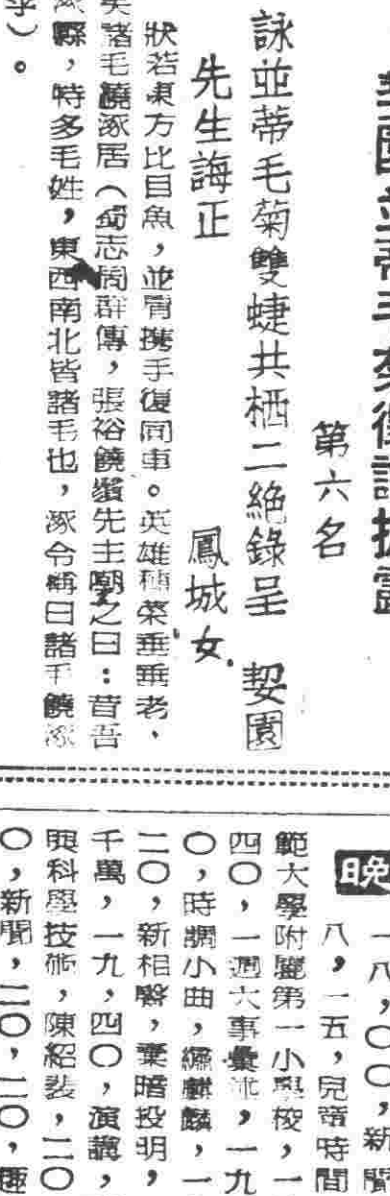 第六名
詠並蒂毛菊雙蜨共栖二絕錄呈 挈園
先生誨正 鳳城女
狀若東方比目魚，並肩携手復同車。英雄種菜垂垂老、
諸毛繞涿居（蜀志周群傳，張裕饒鬚先主嘲之曰：昔吾
縣，特多毛姓，東西南北皆諸毛也，涿令稱曰諸毛饒涿
乎）。
晚
一八，〇〇，新聞
八，一五，兒童時間
範大學附屬第一小學校，一
四〇，一週大事彙
〇，時調小曲，
二〇，新相聲，棄暗投明，
千萬，一九，四〇，演講，
與科學技術，陳紹裴，二〇
〇，新聞，二〇，二〇，